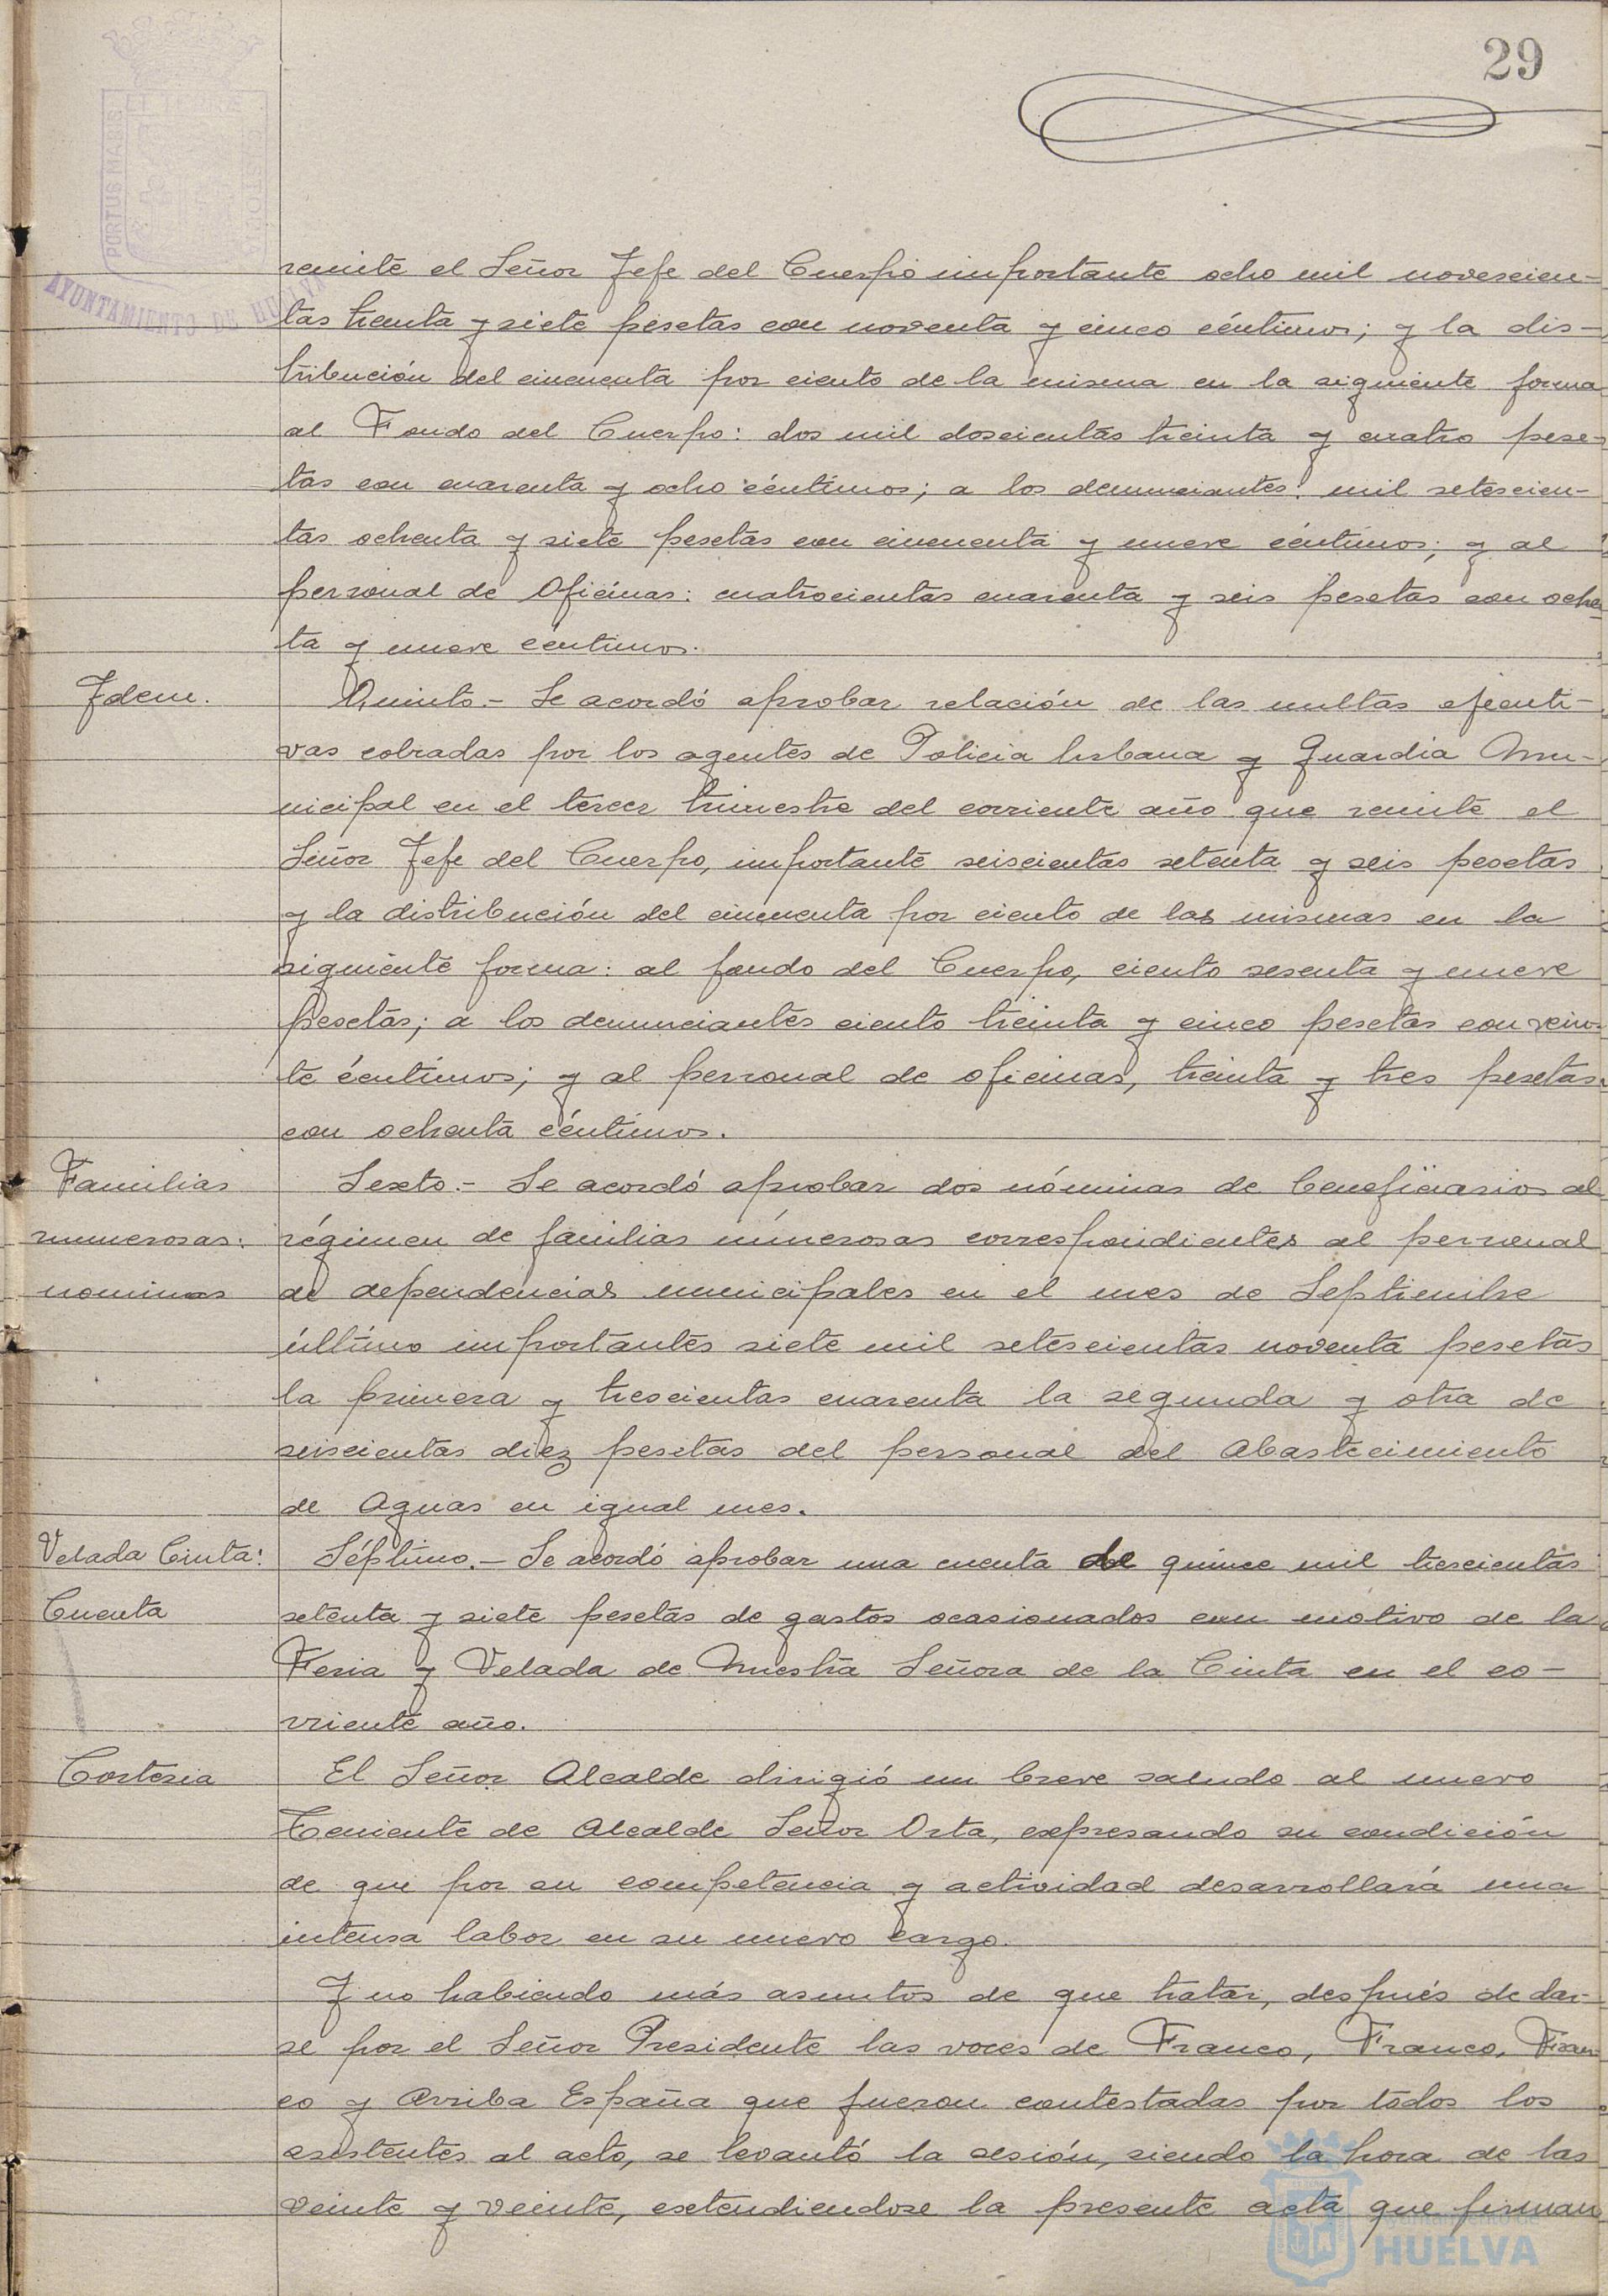 29
PORTUS MARIS
ET TERRE
CUSTODIA
AYUNTAMIENTO DE HUELVA
remite el Señor Jefe del Cuerpo importante ocho mil novescien-
tas treinta y siete pesetas con noventa y cinco céntimos; y la dis-
tribución del cincuenta por ciento de la misma en la siguiente forma
al Fondo del Cuerpo: dos mil doscientas treinta y cuatro pese-
tas con cuarenta y ocho céntimos; a los denunciantes: mil setescien-
tas ochenta y siete pesetas con cincuenta y nueve céntimos; y al
personal de Oficinas: cuatrocientas cuarenta y seis pesetas con ochen-
ta y nueve céntimos.
Idem.
Quinto.- Se acordó aprobar relación de las multas efecti-
vas cobradas por los agentes de Policia Urbana y Guardia Mu-
nicipal en el tercer trimestre del corriente año que remite el
Señor Jefe del Cuerpo, importante seiscientas setenta y seis pesetas
y la distribución del cincuenta por ciento de las mismas en la
siguiente forma: al fondo del Cuerpo, ciento sesenta y nueve
pesetas; a los denunciantes ciento treinta y cinco pesetas con vein-
te céntimos; y al personal de oficinas, treinta y tres pesetas
con ochenta céntimos.
Familias
numerosas:
nominas
Sexto.- Se acordó aprobar dos nóminas de beneficiarios al
régimen de familias númerosas correspondientes al personal
de dependencias municipales en el mes de Septiembre
último importantes siete mil setescientas noventa pesetas
la primera y trescientas cuarenta la segunda y otra de
seiscientas diez pesetas del personal del Abastecimiento
de Aguas en igual mes.
Velada Cinta:
Cuenta
Séptimo.- Se acordó aprobar una cuenta de quince mil trescientas
setenta y siete pesetas de gastos ocasionados con motivo de la
Feria y Velada de Nuestra Señora de la Cinta en el co-
rriente año.
Cortesia
El Señor Alcalde dirigió un breve saludo al nuevo
Teniente de Alcalde Señor Orta, expresando su condición
de que por su competencia y actividad desarrollará una
intensa labor en su nuevo cargo.
Y no habiendo más asuntos de que tratar, después de dar-
se por el Señor Presidente las voces de Franco, Franco, Fran-
co y Arriba España que fueron contestadas por todos los
asistentes al acto, se levantó la sesión, siendo la hora de las
veinte y veinte, extendiendose la presente acta que firman
Ayuntamiento de
HUELVA